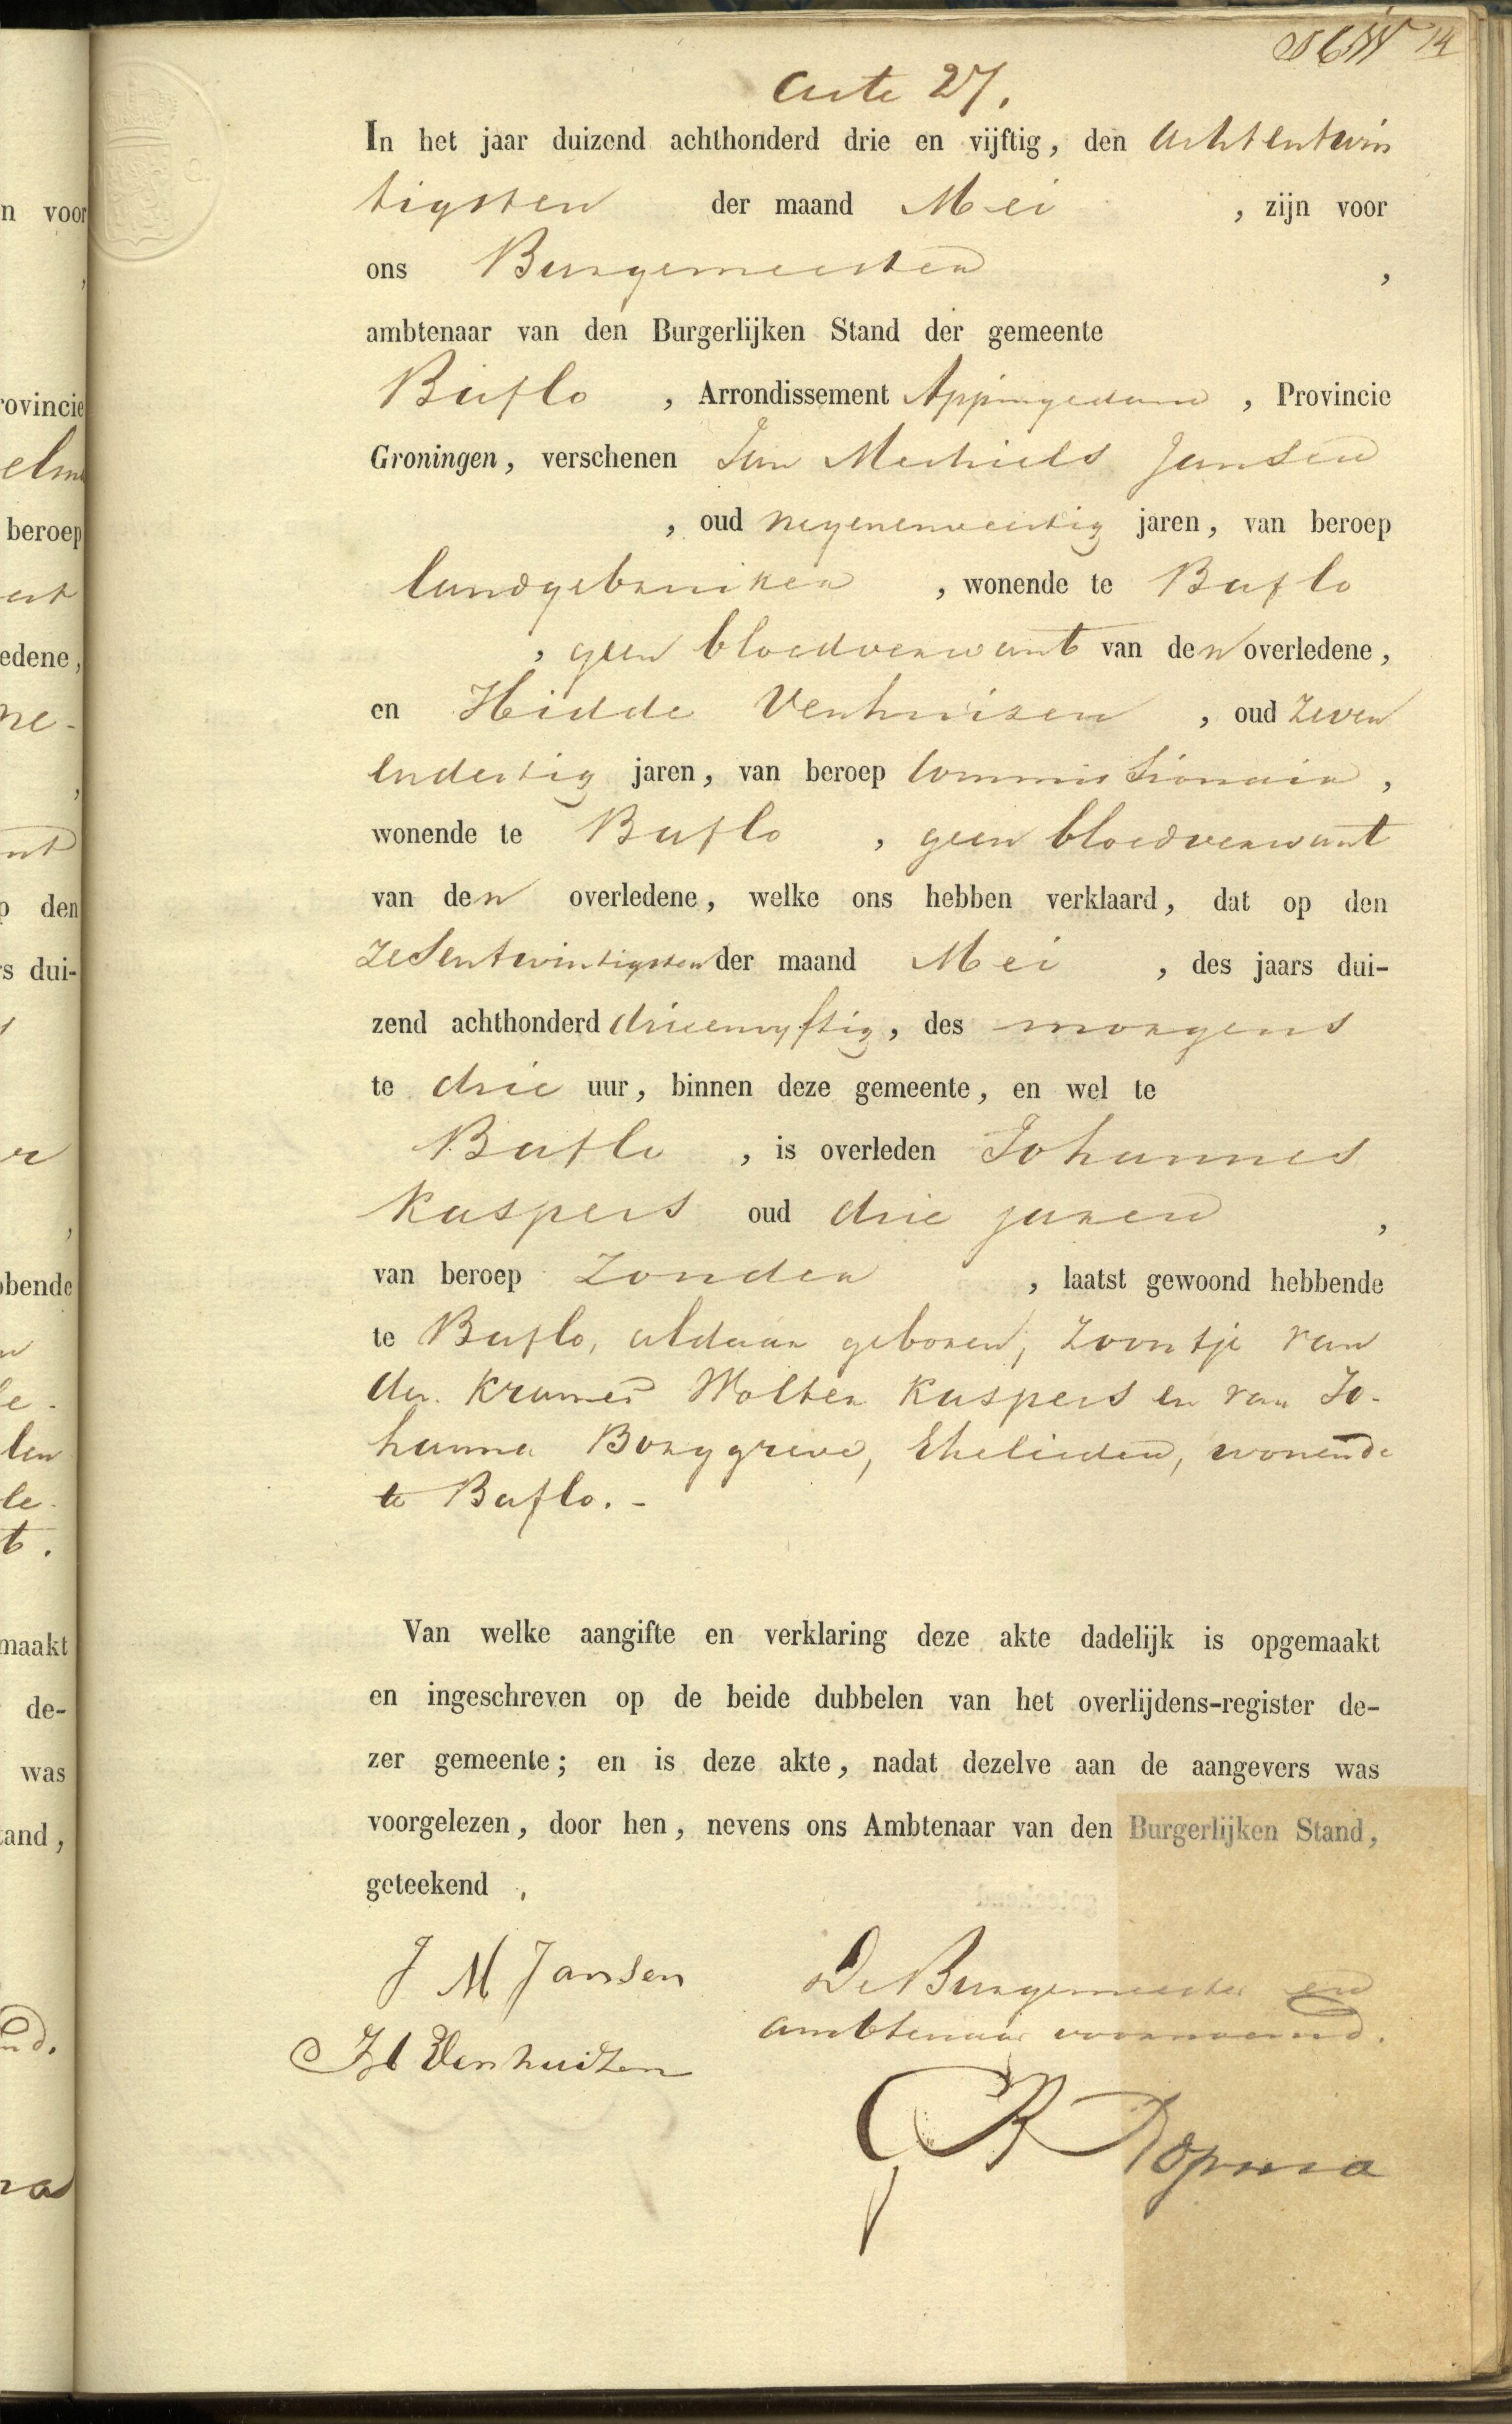 14
Acte 27.
In het jaar duizend achthonderd drie en vijftig, den achtentwin
tigsten der maand Mei , zijn voor
ons Burgemeester ,
ambtenaar van den Burgerlijken Stand der gemeente
Baflo , Arrondissement Appingedam , Provincie
Groningen, verschenen Jan Mechiels Jansen
, oud negenenveertig jaren, van beroep
landgebruiker , wonende te Baflo
, geen bloedverwant van den overledene,
en Hidde Venhuizen , oud zeven
endertig jaren, van beroep Commissionair ,
wonende te Baflo , geen bloedverwant
van den overledene, welke ons hebben verklaard, dat op den
zesentwintigsten der maand Mei , des jaars dui-
zend achthonderd drieenvyftig, des morgens
te drie uur, binnen deze gemeente, en wel te
Baflo , is overleden Johannes
Kaspers oud drie jaren ,
van beroep Zonder , laatst gewoond hebbende
te Baflo, aldaar geboren, zoontje van
den Kramer Wolter Kaspers en van Jo-
hanna Borggreve, Ehelieden, wonende
te Baflo. -
Van welke aangifte en verklaring deze akte dadelijk is opgemaakt
en ingeschreven op de beide dubbelen van het overlijdens-register de-
zer gemeente; en is deze akte, nadat dezelve aan de aangevers was
voorgelezen, door hen, nevens ons Ambtenaar van den Burgerlijken Stand,
geteekend .
J M Jansen
H Venhuizen
De Burgemeester en
ambtenaar voornoemd.
n voor
rovincie
beroep
edene,
p den
rs dui-
bbende
maakt
de-
was
tand,